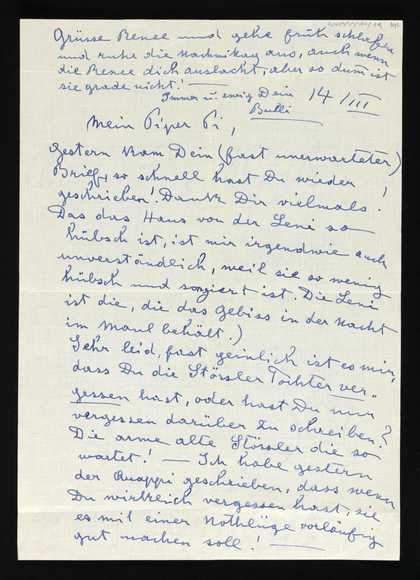 Grüsse Renee und gehe früh schlafen
und ruhe die Nachmittag aus, auch wenn
die Renee dich auslacht, aber so dum ist
sie grade nicht!
Immer u ewig Dein 14/III
Bulli
Mein Piper Pi,
Gestern kam Dein (fast unerwarteter)
Brief, so schnell hast Du wieder
geschrieben! Dank Dir vielmals.
Das das Haus von der Leni so
hübsch ist, ist mir irgendwie auch
unverständlich, weil sie so wenig
hübsch und ist. Die Leni
ist die, die das Gebiss in der Nacht
im Maul behält.)
Sehr leid, fast peinlich ist es mir,
dass Du die Störsler Tochter ver-
gessen hast, oder hast Du nur
vergessen darüber zu schreiben?
Die arme alte Störsler die so
wartet! — Ich habe gestern
der Quappi geschrieben, dass wenn
Du wirklich vergessen hast, sie
es mit einer Nothlüge vorläufig
gut machen soll! —